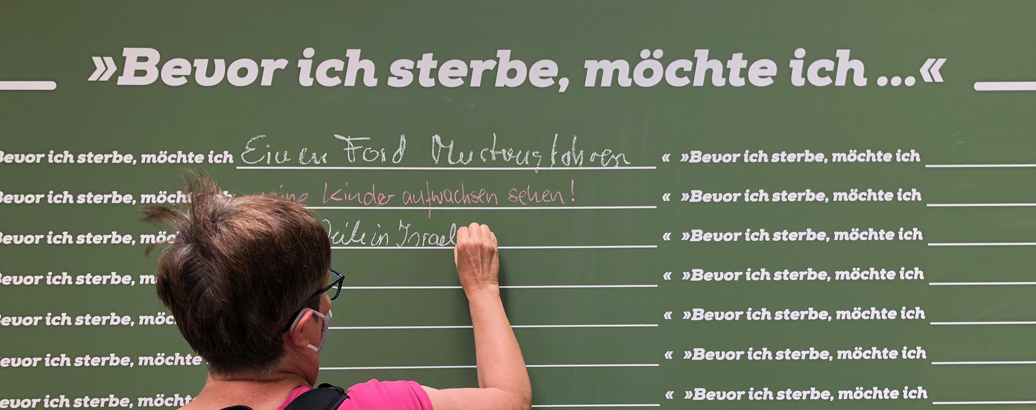 »Bevor ich sterbe, möchte ich ...«
Bevor ich sterbe, möchte ich Einen Ford Mustang fahren « »Bevor ich sterbe, möchte ich
Bevor ich sterbe, möchte Kinder aufwachsen sehen! « »Bevor ich sterbe, möchte ich
Bevor ich sterbe, in Israel « »Bevor ich sterbe, möchte ich
Bevor ich sterbe, « »Bevor ich sterbe, möchte ich
Bevor ich sterbe, « »Bevor ich sterbe, möchte ich
Bevor ich sterbe, möchte « »Bevor ich sterbe, möchte ich
Bevor ich sterbe, möchte « »Bevor ich sterbe, möchte ich